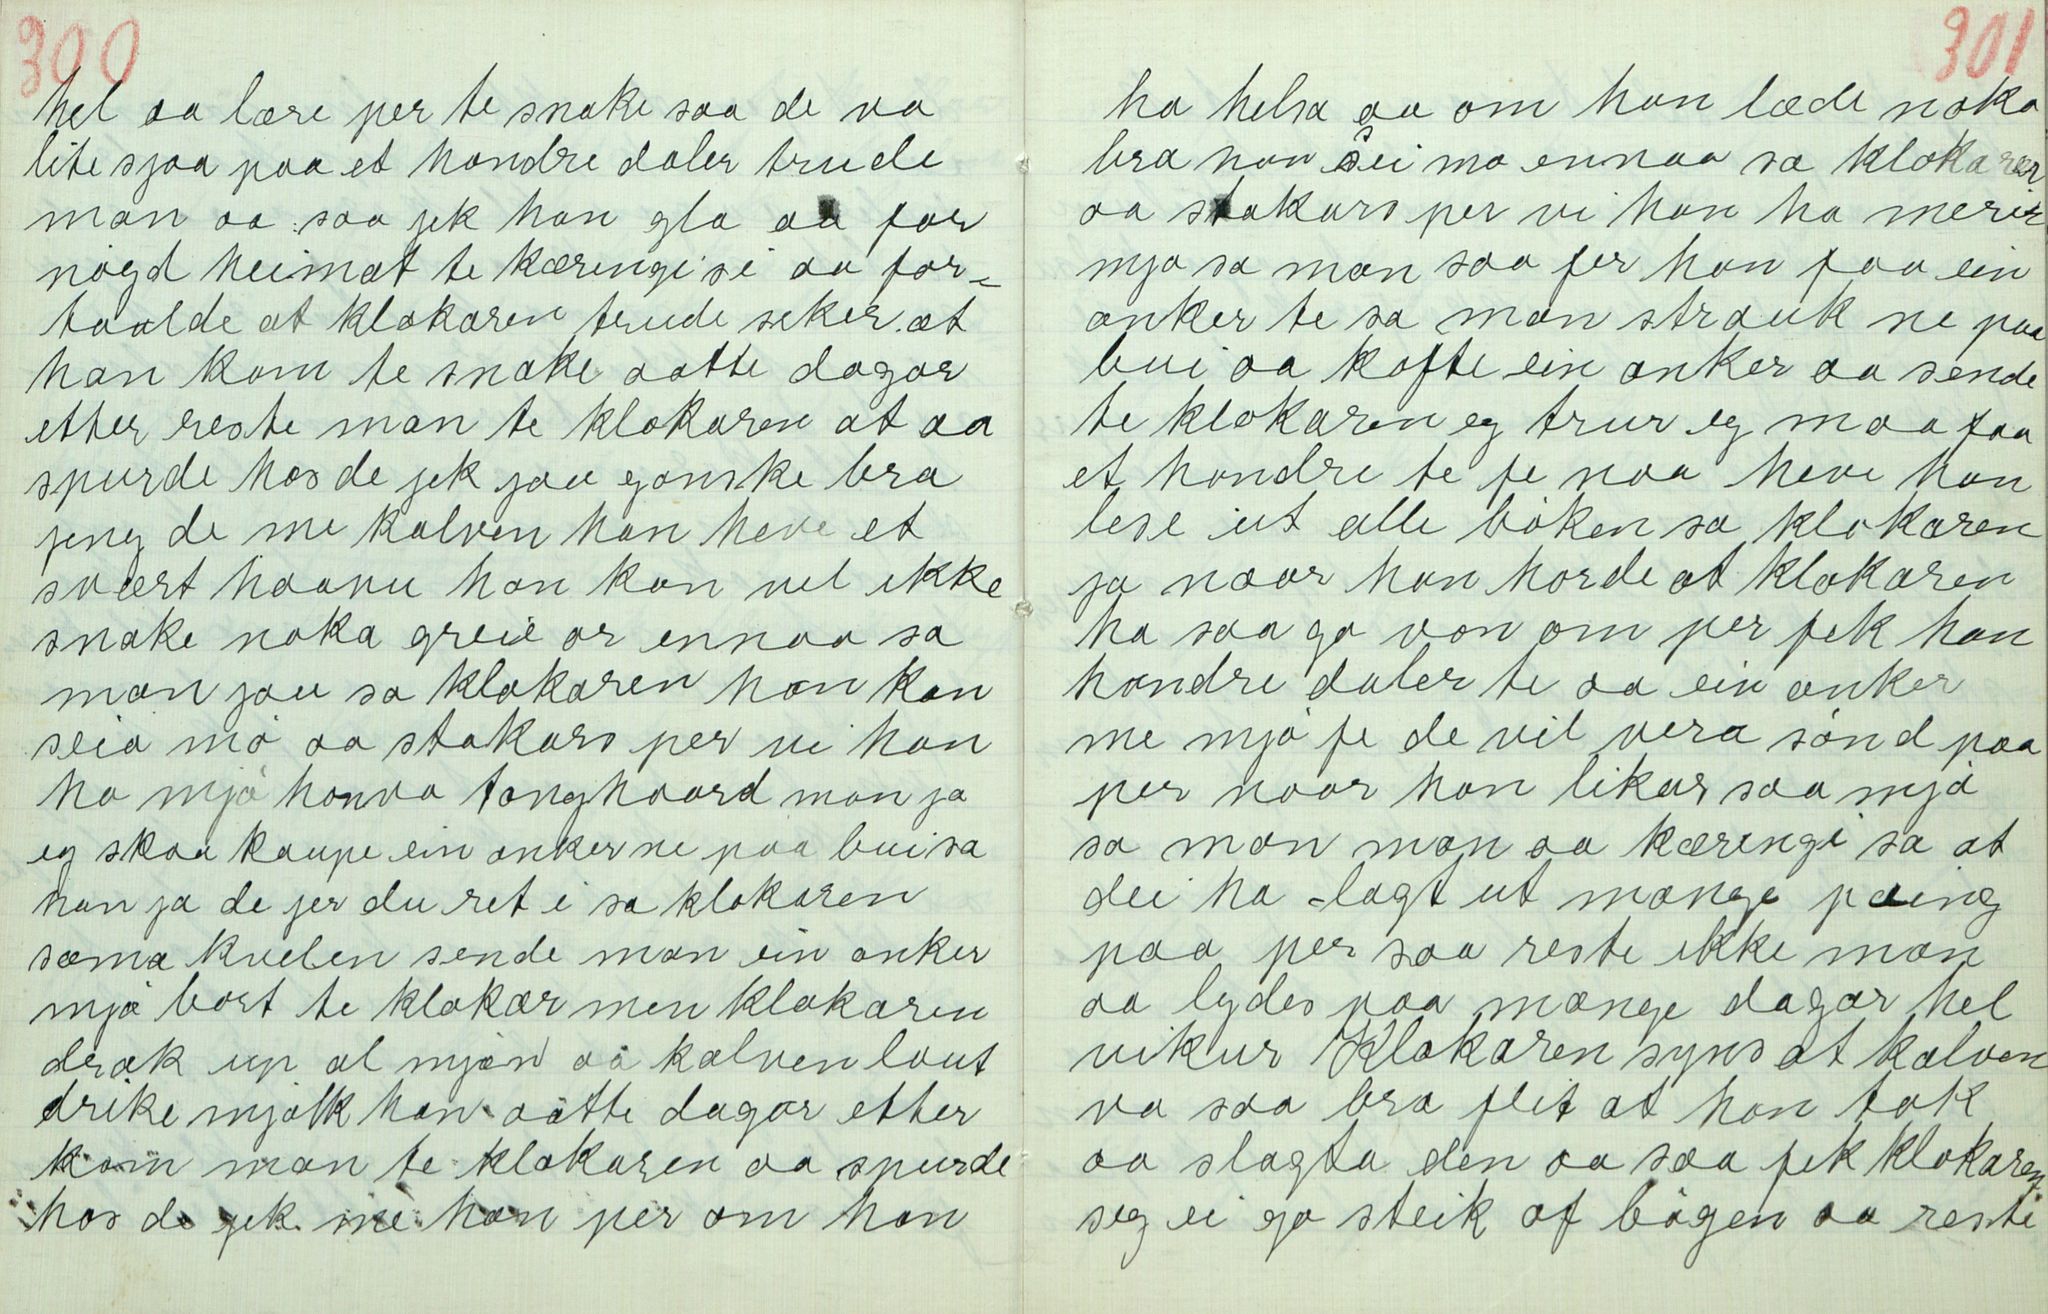 300
hel aa lære per te snake saa de va
lite sjaa paa et hondre daler trude
man aa saa jek han gla aa for
nögd heimat te kæringi si aa for-
taalde at klokaren trude seker at
han kom te snake aatte dagar
etter reste man te klokaren at aa
spurde hos de jek jau ganske bra
jeng de me kalven han heve et
svært haavu han kan vel ikke
snake noka greie or ennaa sa
man jau sa klokaren han kan
seia mö aa stakars per vi han
ha mjö honva tonghaard man ja
eg skaa kaupe ein anker ne paa bui sa
han ja de jer du ret i sa klokaren
sama kvelen sende man ein anker
mjö bort te klokar men klokaren
drak up al mjön aa kalven laut
drike mjölk han aatte dagar etter
kom man te klokaren aa spurde
hos de jek me han per om han
301
ha helsa aa om han læde noka
bra han sei mo ennaa sa klokaren
aa stakars per vi han ha merir
mjö sa man saa fer han faa ein
anker te sa man strauk ne paa
bui aa kofte ein anker aa sende
te klokaren eg trur eg maa faa
et hondre te fe naa heve han
lese ut alle böken sa klokaren
ja naar han horde at klokaren
ha saa go von om per fek han
hondre daler te aa ein anker
me mjö fe de vil vera sönd paa
per naar han likar saa mjö
sa man man aa kæringi sa at
dei ha lagt ut mange pæing
paa per saa reste ikke man
aa lydes paa mange dagar hel
vikur Klokaren syns at kalven
va saa bra fleit at han tok
aa slagta den aa saa fek klokaren
seg ei go steik af bögen aa reste